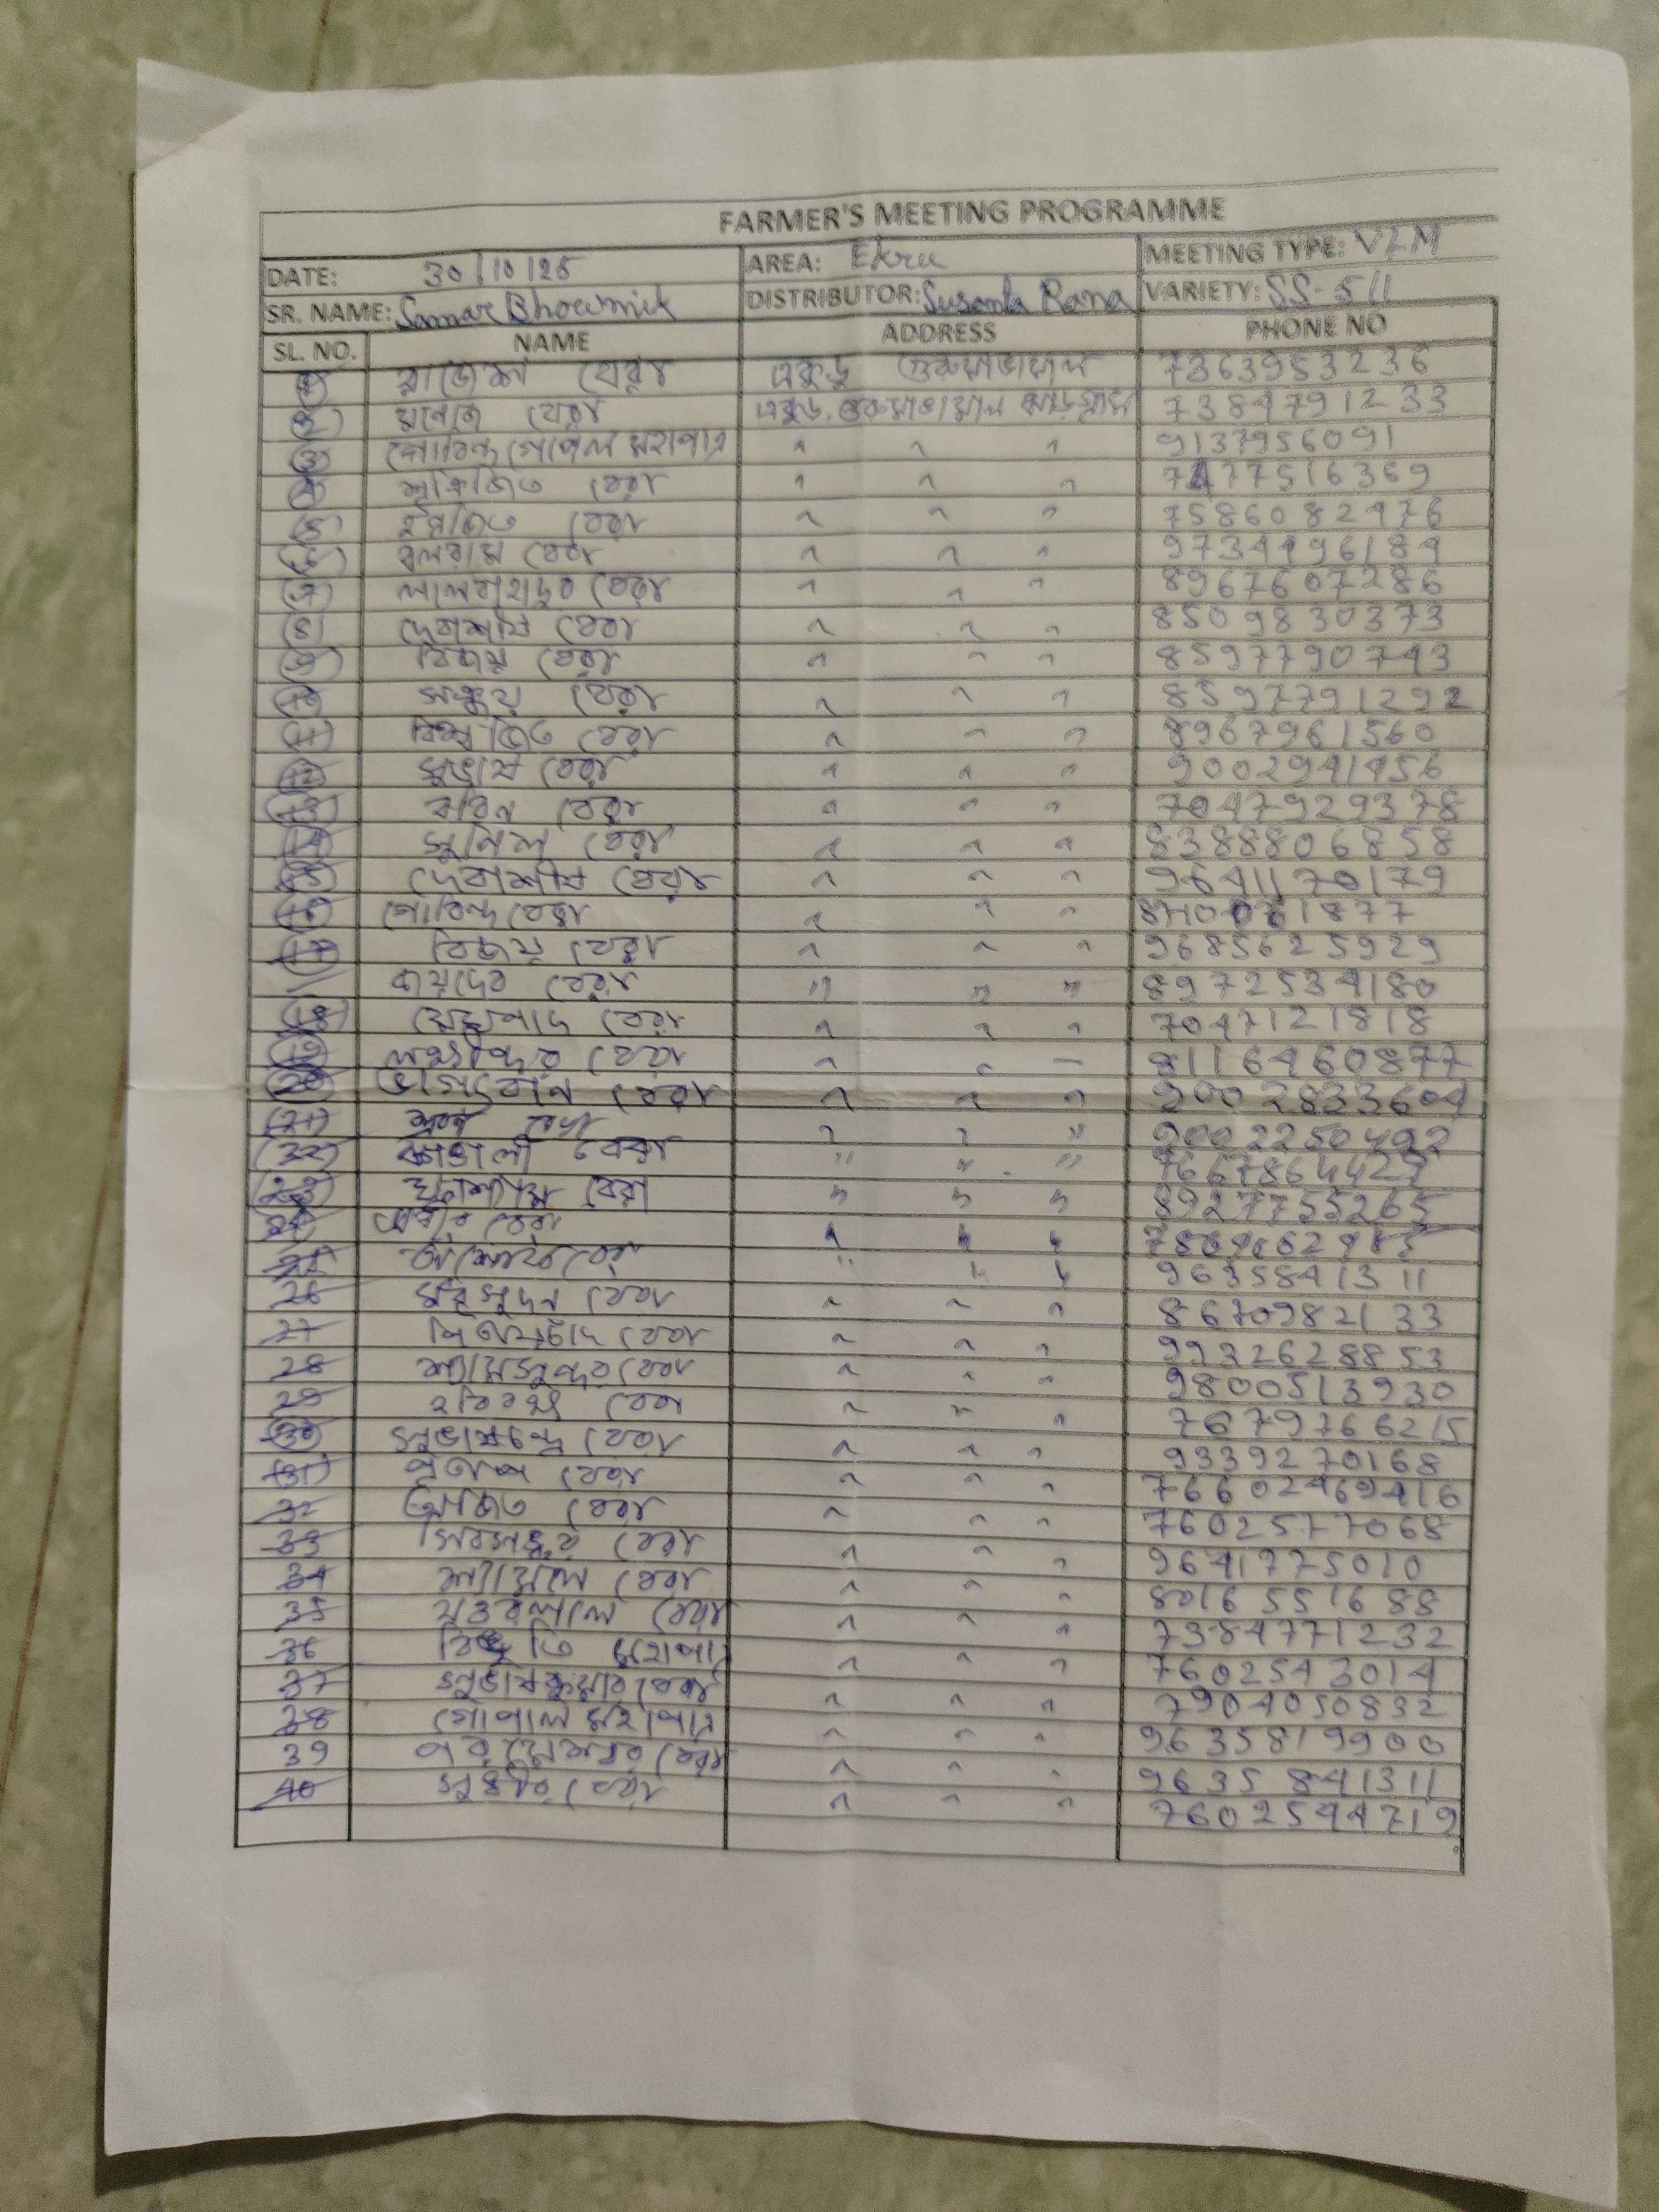 FARMER'S MEETING PROGRAMME
DATE: 30/10/25 AREA: Ekru MEETING TYPE: VLM
SR. NAME: Samar Bhowmick DISTRIBUTOR: Susanta Rana VARIETY: SS-511
SL. NO. NAME ADDRESS PHONE NO
1 রাজেশ বেরা একুড় 7363953236
2 মনোজ বেরা একুড় 7384791233
3 গোবিন্দ গোপাল মহাপাত্র " " " 9137956091
4 বেরা " " " 7477516369
5 ইন্দ্রজিত বেরা " " " 7586082476
6 বলরাম বেরা " " " 9734496184
7 লালবাহাদুর বেরা " " " 8967607286
8 দেবাশীষ বেরা " " " 8509830373
9 বিজয় বেরা " " " 8597790743
10 সঞ্জয় বেরা " " " 8597791292
11 বিশ্বজিত বেরা " " " 8967961560
12 সুভাষ বেরা " " " 9002941456
13 রবিন বেরা " " " 7047929378
14 সুনিল বেরা " " " 8388806858
15 দেবাশীষ বেরা " " " 9641170179
16 গোবিন্দ বেরা " " "
17 বিজয় বেরা " " " 9685625929
জয়দেব বেরা " " " 8972534180
18 বেরা " " " 7047121818
19 লক্ষীন্দর বেরা " " " 8116460877
20 বেরা " " " 9002833604
21 বেরা " " " 9002250492
22 বেরা " " " 7667864427
23 ঘনশ্যাম বেরা " " " 8927755265
24 বেরা " " "
25 অশোক বেরা " " " 9635841311
26 মধুসুদন বেরা " " " 8670982133
27 বেরা " " " 9932628853
28 শ্যামসুন্দর বেরা " " " 9800513930
29 বেরা " " " 7679766215
30 সুভাষচন্দ্র বেরা " " " 9339270168
31 প্রতাপ বেরা " " " 76602469416
32 অজিত বেরা " " " 7602577068
33 শিবসঙ্কর বেরা " " " 9641775010
34 শ্যামল বেরা " " " 8016551688
35 বেরা " " " 7384771232
36 বিভুতি মহাপাত্র " " " 7602543014
37 সুভাষকুমার বেরা " " " 7904050832
38 গোপাল মহাপাত্র " " " 9635819900
39 পরমেশ্বর বেরা " " " 9635841311
40 সুধীর বেরা " " " 7602544719